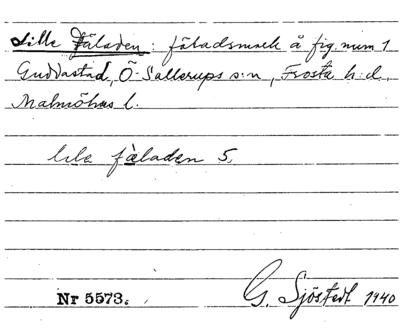 Lille Fäladen: fäladsmark å fig. num 1
Guddastad, Ö. Sallerups s:n, Frosta h:d,
Malmöhus l.
lilə fäladen 5.
Nr 5573. G. Sjöstedt 1940